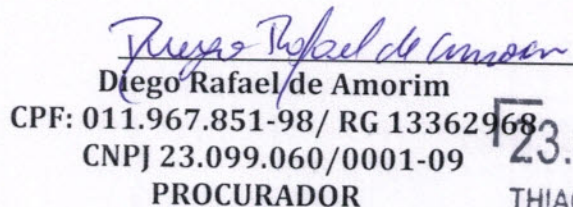 Diego Rafael de Amorim
Diego Rafael de Amorim
CPF: 011.967.851-98/ RG 13362968
CNPJ 23.099.060/0001-09
23.
PROCURADOR
THIAG